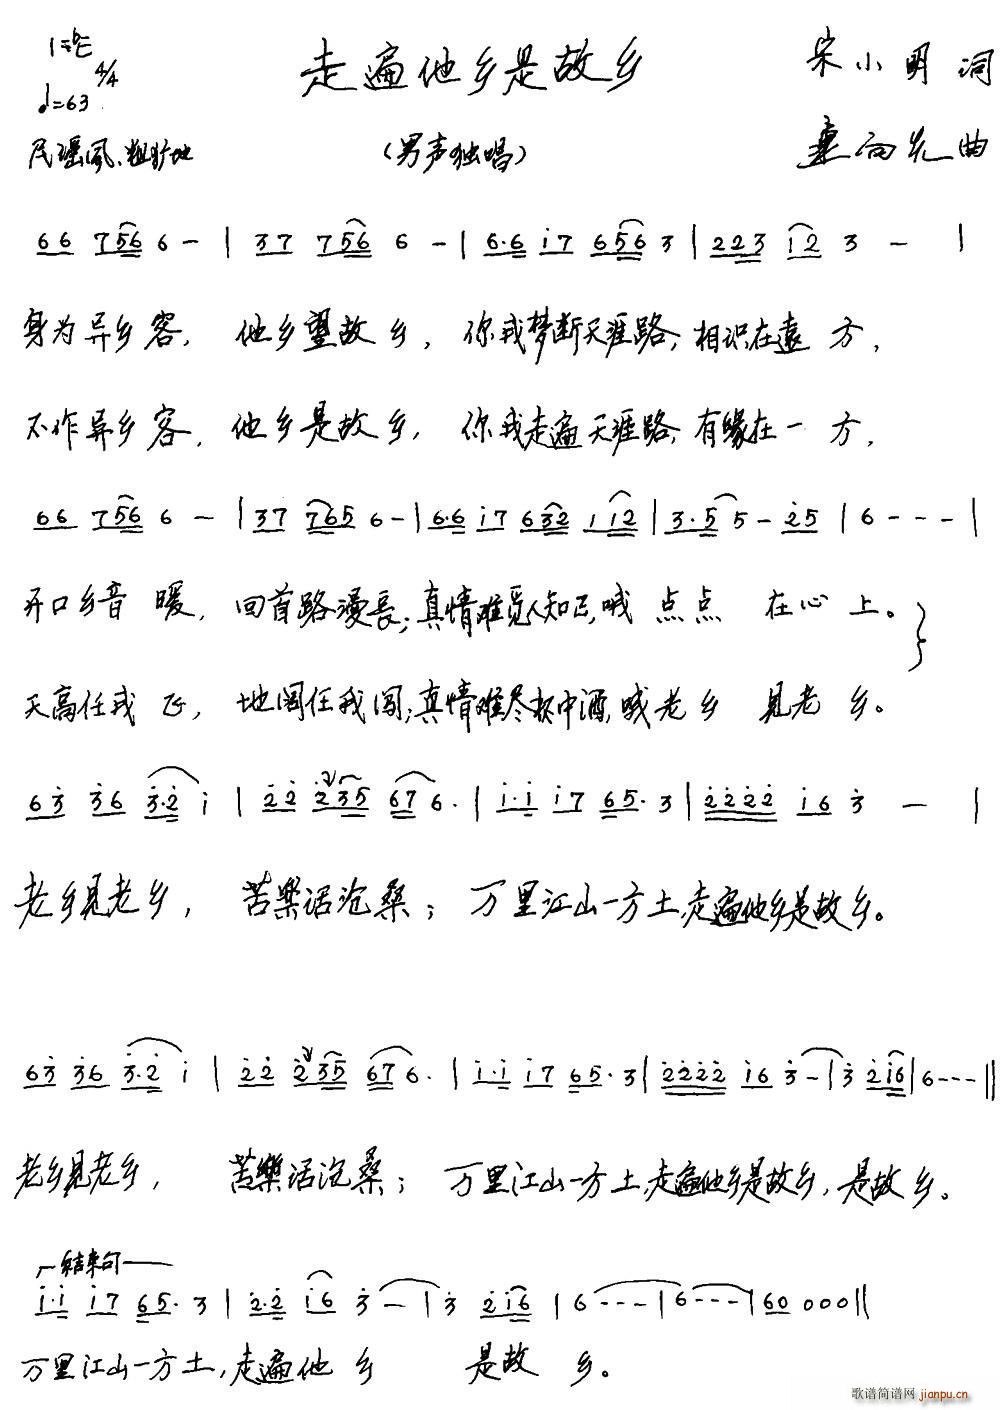 1=♭E 4/4
走遍他乡是故乡
宋小明 词
♩=63
民谣风、粗犷地
(男声独唱)
曲
66 7566 - | 37 756 6 - | 6·6 i7 656 3 | 223 i2 3 - |
身为异乡客, 他乡望故乡, 你我梦断天涯路, 相识在遠方,
不作异乡客, 他乡是故乡, 你我走遍天涯路, 有缘在一方,
66 756 6 - | 37 765 6 - | 6·6 i7 632 1 12 | 3·5 5 - 25 | 6 - - - |
开口乡音暖, 回首路漫長; 真情难觅人知己, 哦 点点 在心上。
天高任我飞, 地阔任我闯; 真情难尽杯中酒, 哦老乡 見老乡。
63 36 3·2 i | 22 235 67 6· | i·i i7 65· 3 | 2222 i6 3 - |
老乡見老乡, 苦樂话沧桑; 万里江山一方土, 走遍他乡是故乡。
63 36 3·2 i | 22 235 67 6· | i·i i7 65· 3 | 2222 i6 3 - | 3 2i6 | 6 - - - ||
老乡見老乡, 苦樂话沧桑; 万里江山一方土, 走遍他乡是故乡, 是故乡。
结束句
i·i i7 65· 3 | 2·2 i6 3 - | 3 2i6 | 6 - - - | 6 - - - | 60 000 ||
万里江山一方土, 走遍他乡 是故乡。
歌谱简谱网 jianpu.cn